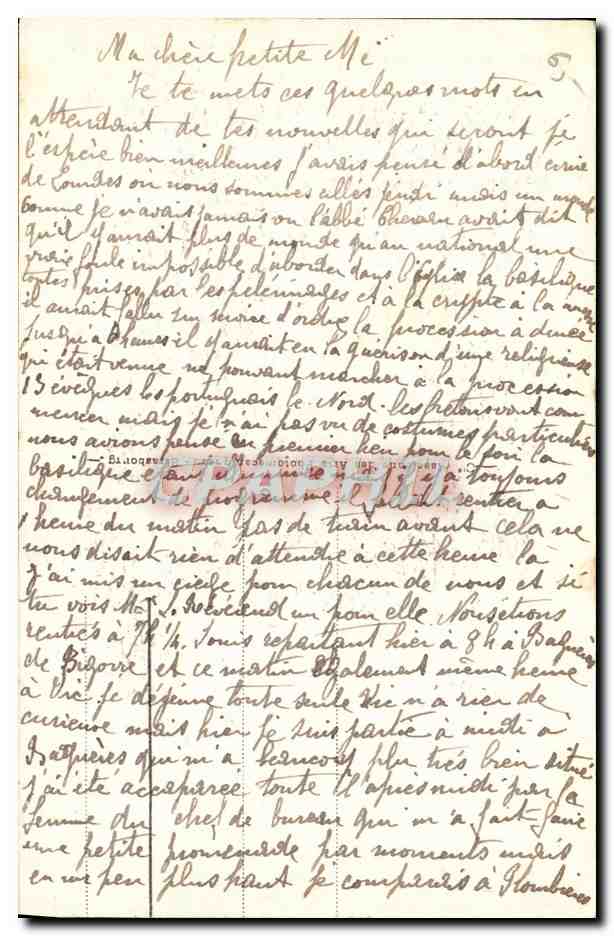 Ma chère petite Mi
5
Je te mets ces quelques mots en
attendant de tes nouvelles qui seront je
l'espère bien meilleures j'avais pensé d'abord écrire
de Lourdes où nous sommes allés jeudi mais un monde
comme je n'avais jamais vu l'abbé avait dit
qu'il y aurait plus de monde qu'au national une
vraie foule impossible d'aborder dans l'Eglise la basilique
toutes prises par les pélerinages et à la crypte à la
il aurait fallu un service d'ordre la procession a duré
jusqu'à heures il y aurait eu la guérison d'une religieuse
qui était venue ne pouvant marcher à la procession
13 évêques les portugais le Nord les bretons vont com
mencer mais je n'ai pas vu de costumes particuliers
nous avions pensé en premier lieu pour le soir la
basilique étant mais il y a toujours
changement de programme et puis rentrer à
1 heure du matin pas de train avant cela ne
nous disait rien d'attendre à cette heure là
J'ai mis un cierge pour chacun de nous et si
tu vois Révérend un pour elle Nous étions
rentrés à 7h ¼. repartant hier à 8h à Bagnères
de Bigorre et ce matin également même heure
à Vic je déjeune toute seule Vic n'a rien de
curieux mais hier je suis partie à midi à
Bagnères qui m'a beaucoup plu très bien situé
j'ai été accaparée toute l'après midi par la
femme du chef de bureau qui m'a fait faire
une petite promenade par moments mais
en un peu plus haut je comparais à Plombières
CPAPHIL